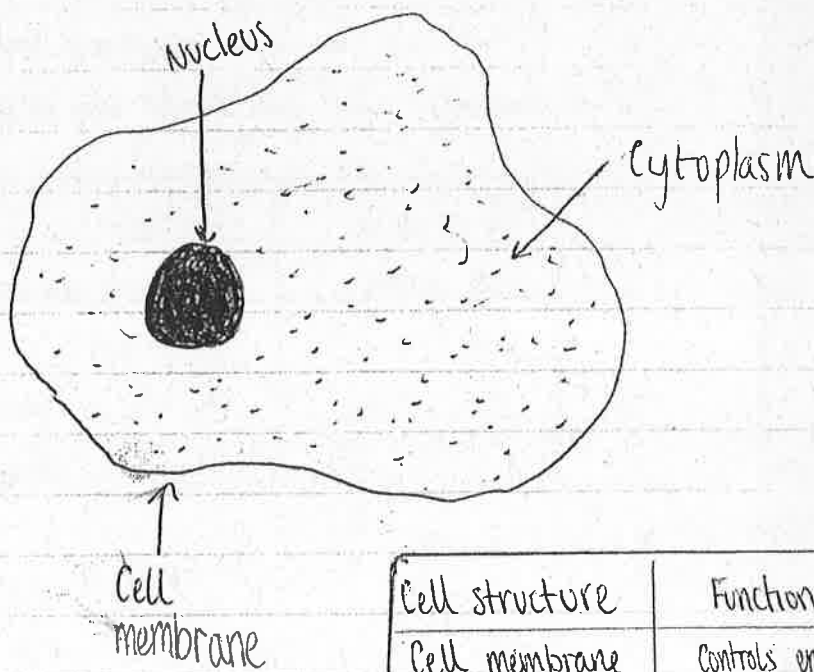 Nucleus
Cytoplasm
Cell
membrane
Cell structure Function
Cell membrane Controls